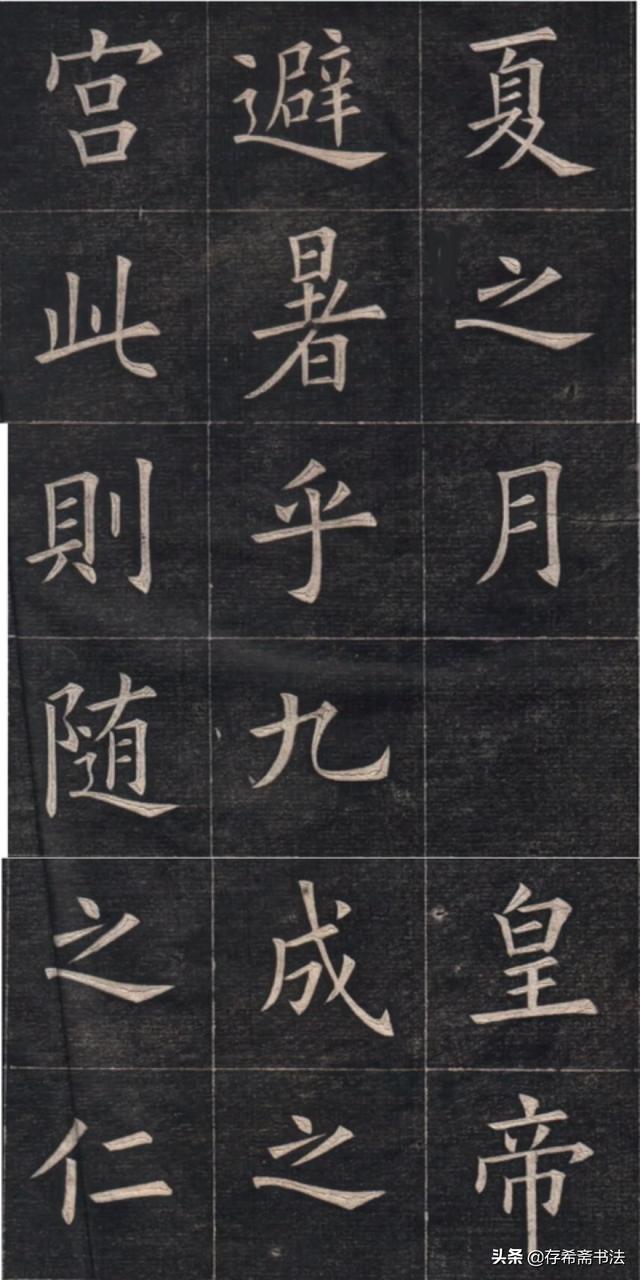 夏之月 皇帝
避暑乎九成之
宫此則随之仁
头条 @存希斋书法